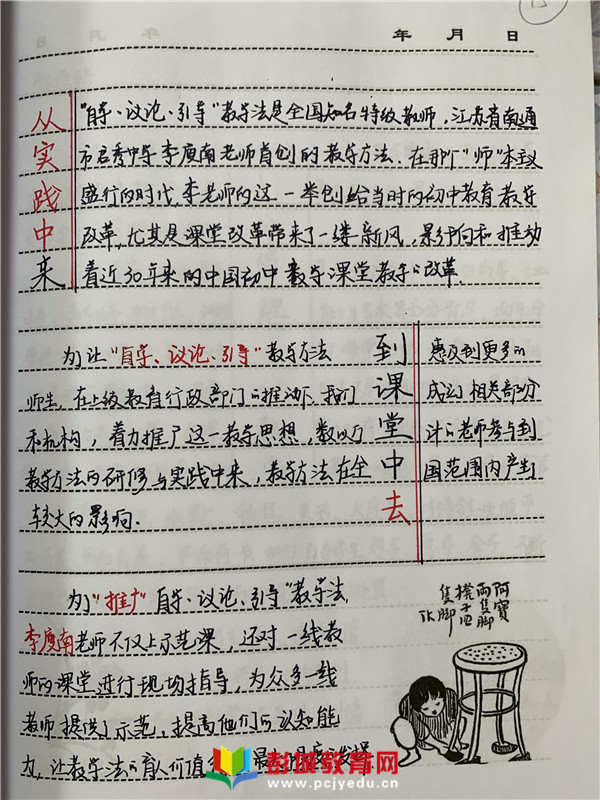 年 月 日
从实践中来
"自学·议论·引导"教学法是全国知名特级教师,江苏省南通
市启秀中学李庾南老师首创的教学方法.在那个"师"本主义
盛行的时代,李老师的这一举创给当时的初中教育教学
改革,尤其是课堂改革带来了一缕新风,影响和推动
着近30年来的中国初中数学课堂教学的改革.
到课堂中去
为了让"自学、议论、引导"教学方法惠及到更多的
师生,在上级教育行政部门的推动下,我们成立相关部分
和机构,着力推广这一教学思想,数以万计的老师参与到
教学方法的研修与实践中来,教学方法在全国范围内产生
较大的影响.
为了"推广"自学、议论、引导"教学法,
李庾南老师不仅上示范课,还对一线教
师的课堂进行现场指导,为众多一线
教师提供了示范,提高他们的认知能
力,让教学法的育人价值得最
阿寶
兩隻脚
櫈子四
隻脚
TK
彭雄教育网
www.pcjyedu.cn